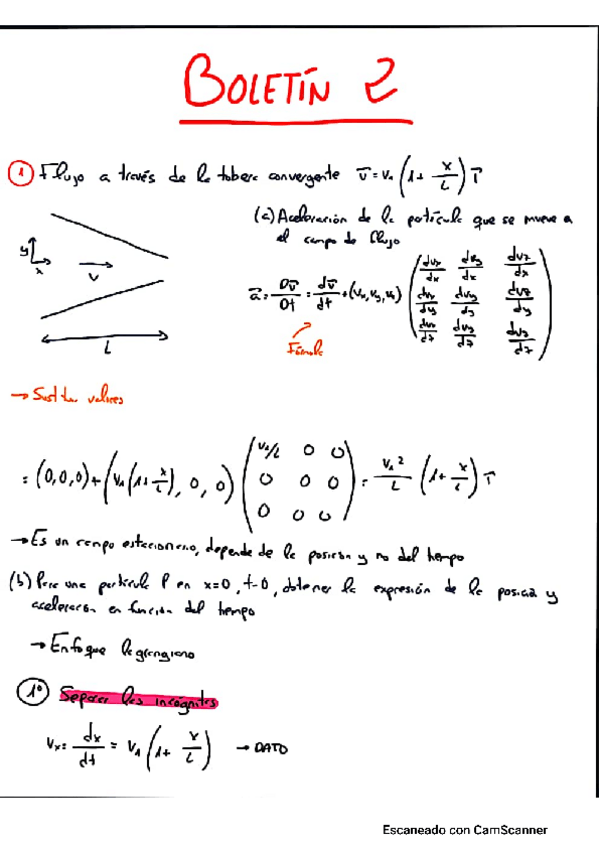 BOLETÍN 2
① Flujo a través de la tobera convergente v̄ = v₁ (1 + x/L) i⃗
(a) Aceleración de la partícula que se mueve a
el campo de flujo
y
x
v
L
a⃗ = Dv̄/Dt = dv̄/dt + (vx, vy, vz) (dvx/dx dvy/dx dvz/dx
dvx/dy dvy/dy dvz/dy
dvx/dz dvy/dz dvz/dz)
Fórmula
→ Sustituir valores
= (0,0,0) + (v₁(1 + x/L), 0, 0) (v₁/L 0 0
0 0 0
0 0 0) = v₁²/L (1 + x/L) i⃗
→ Es un campo estacionario, depende de la posición y no del tiempo
(b) Para una partícula P en x=0, t=0, obtener la expresión de la posición y
aceleración en función del tiempo
→ Enfoque lagrangiano
1º Separar las incógnitas
vx = dx/dt = v₁ (1 + x/L) → DATO
Escaneado con CamScanner